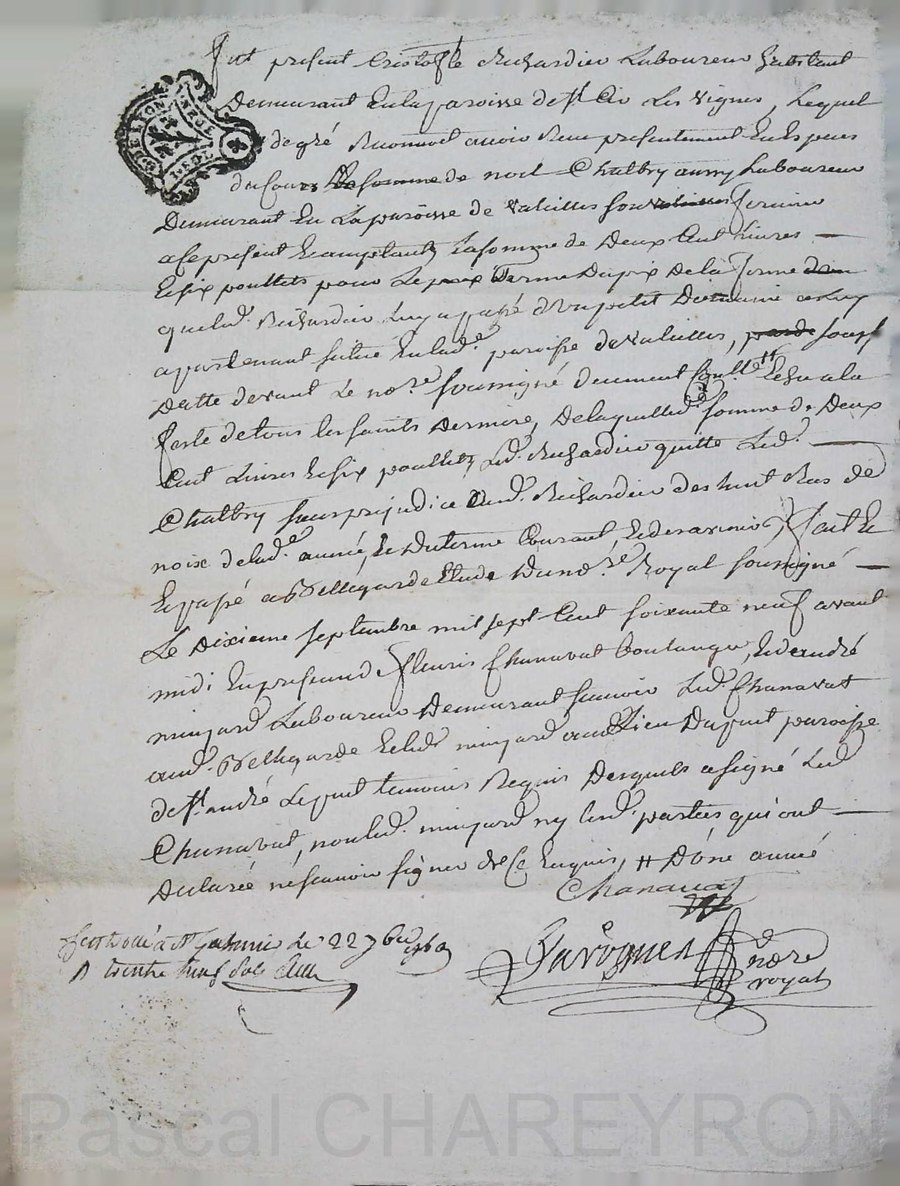 Fut présent Cristofle Richardier Laboureur habitant
Demeurant En la paroisse de st. Cir Les vignes, Lequel
de gré Reconnoit avoir Reçu présentement En Espèces
du Cours La somme de noel Chatbry aussy Laboureur
Demeurant En La paroisse de valeilles fermier
a Ce présent Et acceptant La somme de Deux Cent Livres —
Et six poullets pour Le prix terme Du prix De la ferme
que led. Richardier Luy a passé d'un petit Domaine a Luy
apartenant situé En lad.e paroisse de valeilles, sous
Datte devant Le no.re soussigné deument Con.llé Echu a la
feste de tous les saints Derniere, De laquelle d.e somme de Deux
Cent Livres Et six poullets, Led. Richardier quitte Led. —
Chatbry sans préjudice aud. Richardier des huit Ras de
noix de lad.e année, Et Du terme Courant, Et de
Et passé a Bellegarde Etude Du no.re Royal soussigné —
Le Dixieme septembre mil sept Cent soixante neuf avant
midi En présence de fleuris Chanavat boulanger, Et d'andré
minjard Laboureur Demeurant sçavoir Led. Chanavat
aud. Bellegarde Et led. minjard au Lieu Dupuit paroisse
de st. andré Le puit temoins Requis Desquels a signé Led.
Chanavat, non led. minjard ny Les d. parties qui ont —
Declarée ne sçavoir signer de Ce Enquis, # D.e année
Chanavat
Javogues
no.re
royal
Conttrollé a st. Galmier Le 22 7bre 1769
R treitze neuf sols
Pascal CHAREYRON